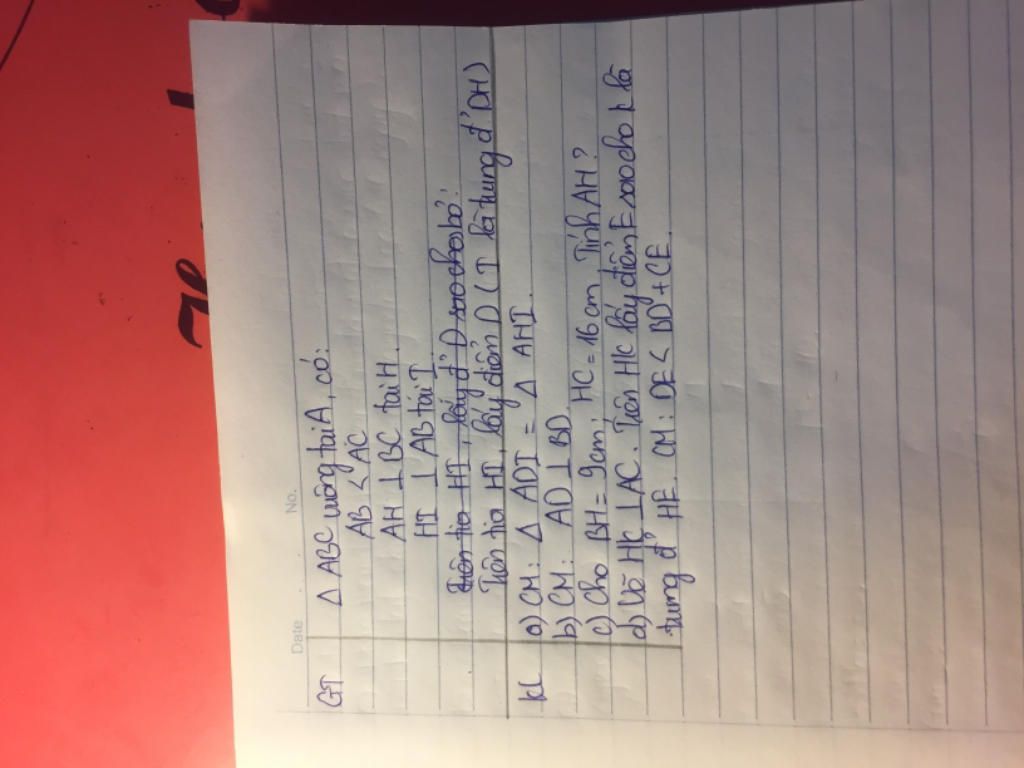 Date No.
GT Δ ABC vuông tại A, có:
AB < AC
AH ⊥ BC tại H.
HI ⊥ AB tại I.
Trên tia HI, lấy đ' D sao cho có:
Trên tia HI, lấy điểm D (I là trung đ' DH)
KL a) CM: Δ ADI = Δ AHI.
b) CM: AD ⊥ BD.
c) Cho BH = 9cm; HC = 16cm. Tính AH?
d) Vẽ HK ⊥ AC. Trên HK lấy điểm E sao cho K là
trung đ' HE. CM: DE < BD + CE.